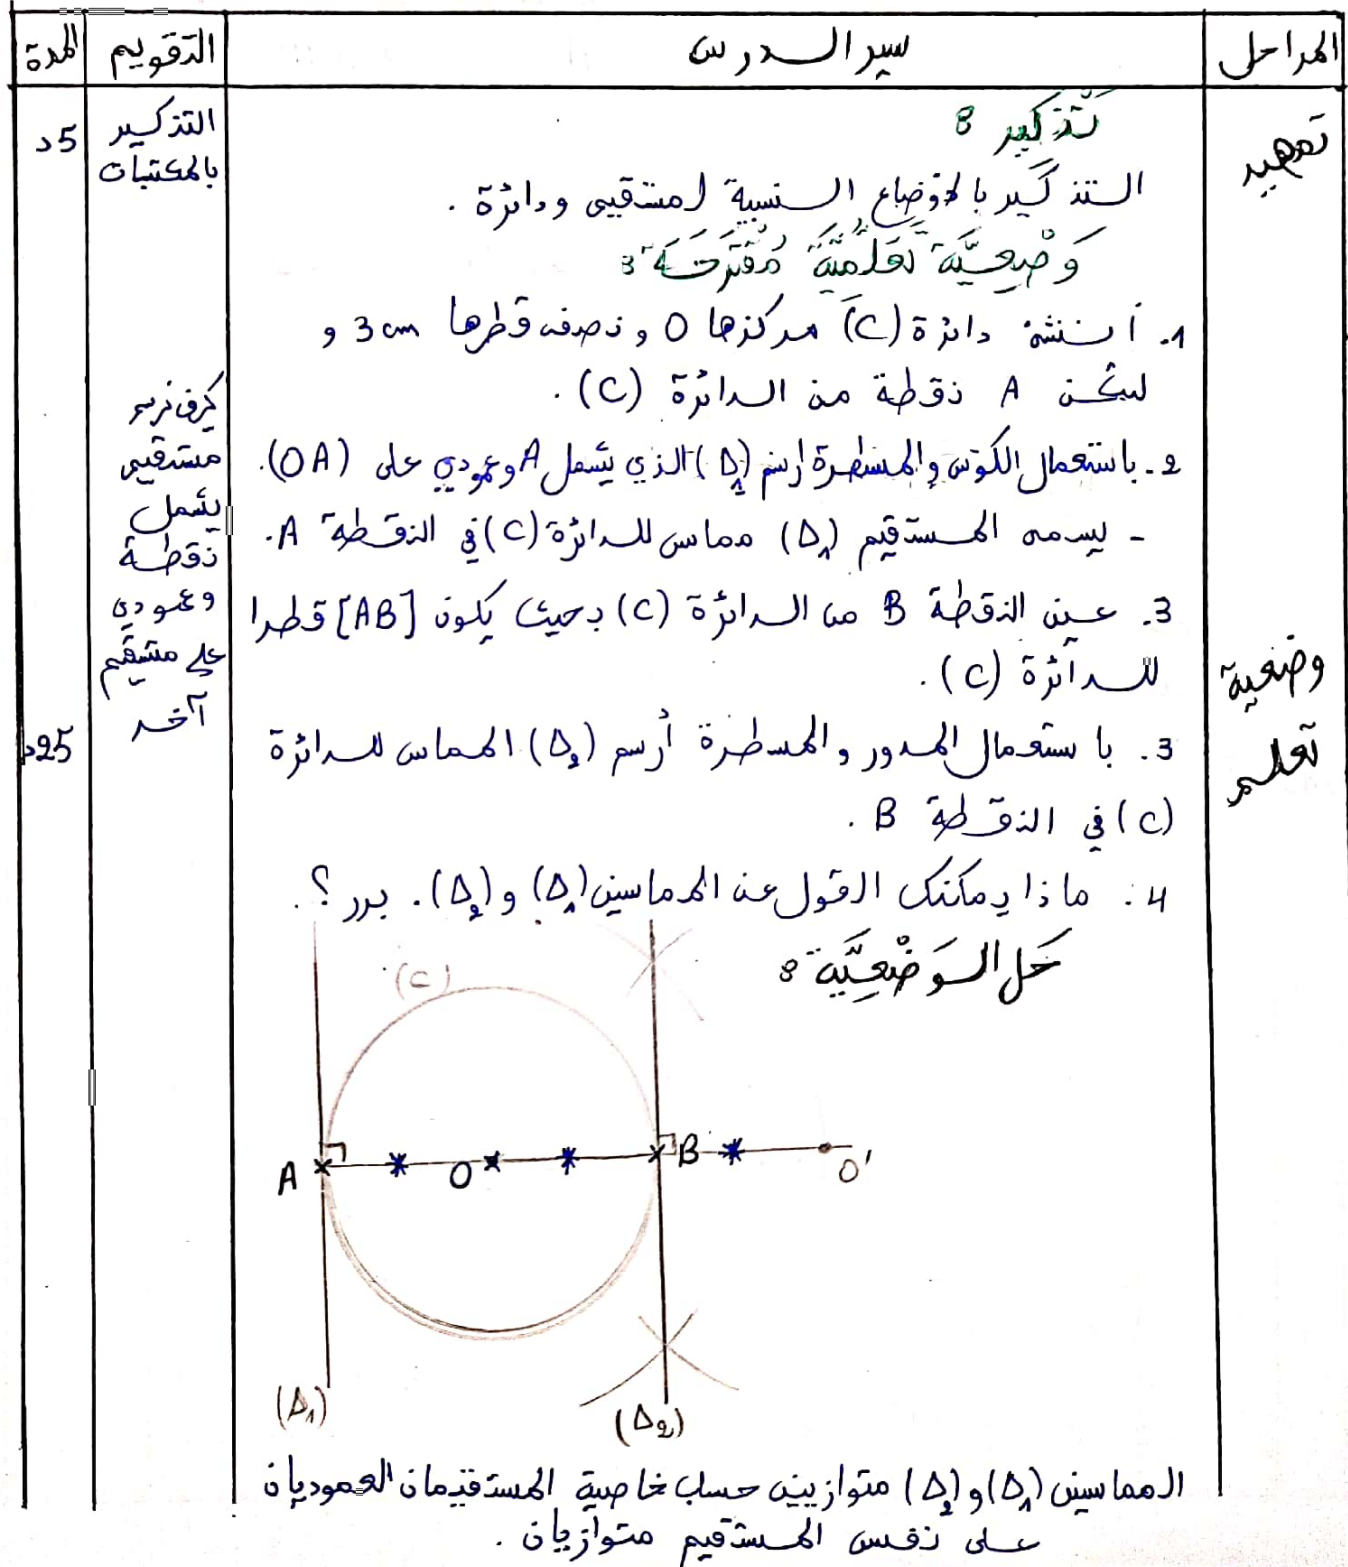 المراحل
سير الدرس
التقويم
المدة
تمهيد
تذكير :
التذكير بالأوضاع النسبية لمستقيم ودائرة .
وضعية تعلمية مقترحة :
1. أنشئ دائرة (C) مركزها O ونصف قطرها 3 cm و
لتكن A نقطة من الدائرة (C) .
2. باستعمال الكوس والمسطرة ارسم (Δ₁) الذي يشمل A وعمودي على (OA).
- يسمى المستقيم (Δ₁) مماس للدائرة (C) في النقطة A.
3. عين النقطة B من الدائرة (C) بحيث يكون [AB] قطرا
للدائرة (C) .
3. باستعمال المدور والمسطرة أرسم (Δ₂) المماس للدائرة
(C) في النقطة B .
4. ماذا يمكنك القول عن المماسين (Δ₁) و (Δ₂) . برر ؟ .
حل الوضعية :
(C)
A
O
B
O'
(Δ₁)
(Δ₂)
المماسين (Δ₁) و (Δ₂) متوازيين حسب خاصية المستقيمان العموديان
على نفس المستقيم متوازيان .
وضعية
تعلم
التذكير
بالمكتسبات
كيف نرسم
مستقيم
يشمل
نقطة
وعمودي
على مستقيم
آخر
5د
25د